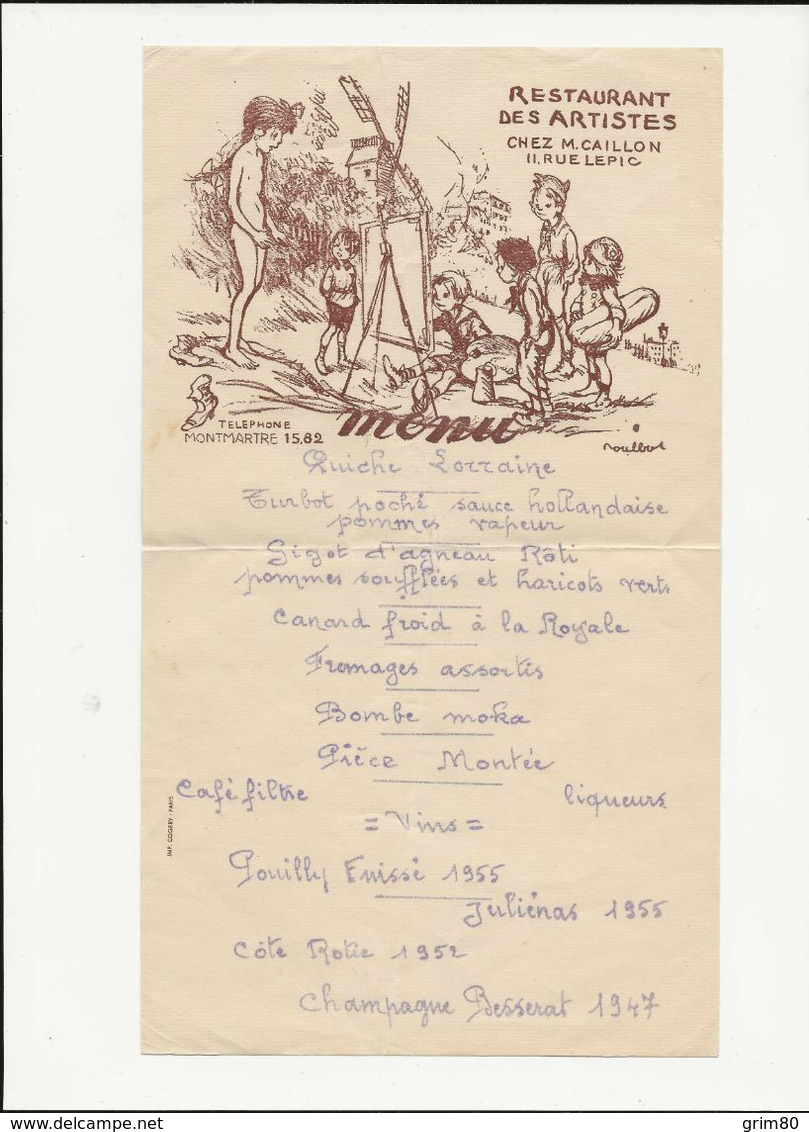 RESTAURANT
DES ARTISTES
CHEZ M. CAILLON
11. RUE LEPIC
TELEPHONE
MONTMARTRE 15.82
menu
Poulbot
Quiche Lorraine
Turbot poché sauce hollandaise
pommes vapeur
Gigot d'agneau Rôti
pommes soufflées et haricots verts
Canard froid à la Royale
Fromages assortis
Bombe moka
Pièce Montée
Café filtre liqueurs
= Vins =
Pouilly Fuissé 1955
Juliénas 1955
Côte Rotie 1952
Champagne Besserat 1947
IMP. COGERY - PARIS
delcampe.net
grim80